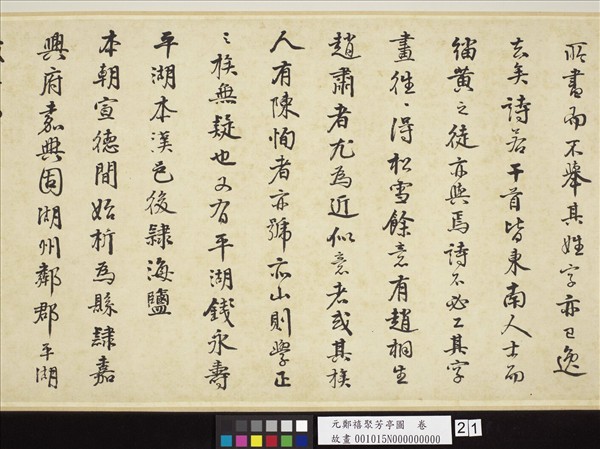 所畫而不舉其姓字亦已逸
去矣詩若干首皆東南人士而
緇黃之徒亦與焉詩不必工其字
畫往〻得松雪餘意有趙桐生
趙肅者尤為近似意者或其族
人有陳恂者亦號亦山則學正
〻族無疑也又有平湖錢永壽
平湖本漢邑後隸海鹽
本朝宣德間始析為縣隸嘉
興府嘉興固湖州鄰郡平湖
元鄭禧聚芳亭圖 卷
故畫 001015N000000000
21